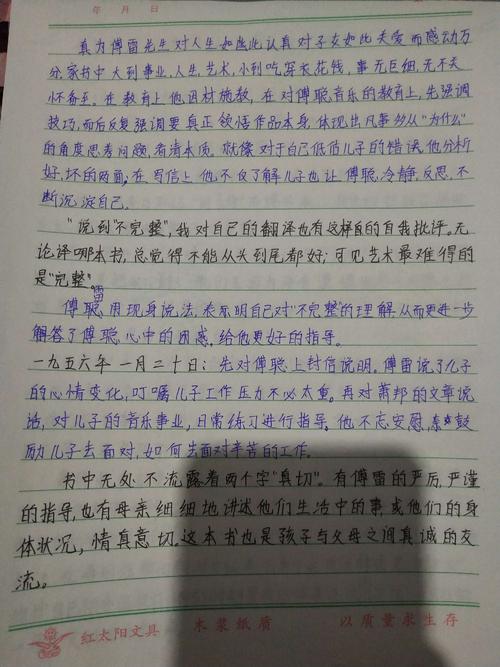 年 月 日
真为傅雷先生对人生如此认真对子女如此关爱而感动万
分,家书中大到事业,人生艺术,小到吃穿衣花钱,事无巨细,无不关
怀备至。在教育上他因材施教,在对傅聪音乐的教育上,先强调
技巧,而后反复强调要真正领悟作品本身,体现出凡事多从"为什么"
的角度思考问题,看清本质。就像对于自己低估儿子的错误,他分析
好,坏的两面;在写信上他不仅了解儿子也让傅聪,冷静,反思,不
断沉淀自己。
"说到"不完整",我对自己的翻译也有这样的自我批评。无
论译哪本书,总觉得不能从头到尾都好;可见艺术最难得的
是"完整"。
傅雷用现身说法,表示明自己对"不完整"的理解,从而更进一步
解答了傅聪心中的困惑,给他更好的指导。
一九五六年一月二十日:先对傅聪上封信说明。傅雷说了儿子
的心情变化,叮嘱儿子工作压力不必太重。再对萧邦的文章说
话,对儿子的音乐事业,日常练习进行指导。他不忘安慰,鼓
励儿子去面对,如何去面对辛苦的工作。
书中无处不流露着两个字"真切"。有傅雷的严厉,严谨
的指导,也有母亲细细地讲述他们生活中的事或他们的身
体状况,情真意切。这本书也是孩子与父母之间真诚的交
流。
红太阳文具 木浆纸质 以质量求生存